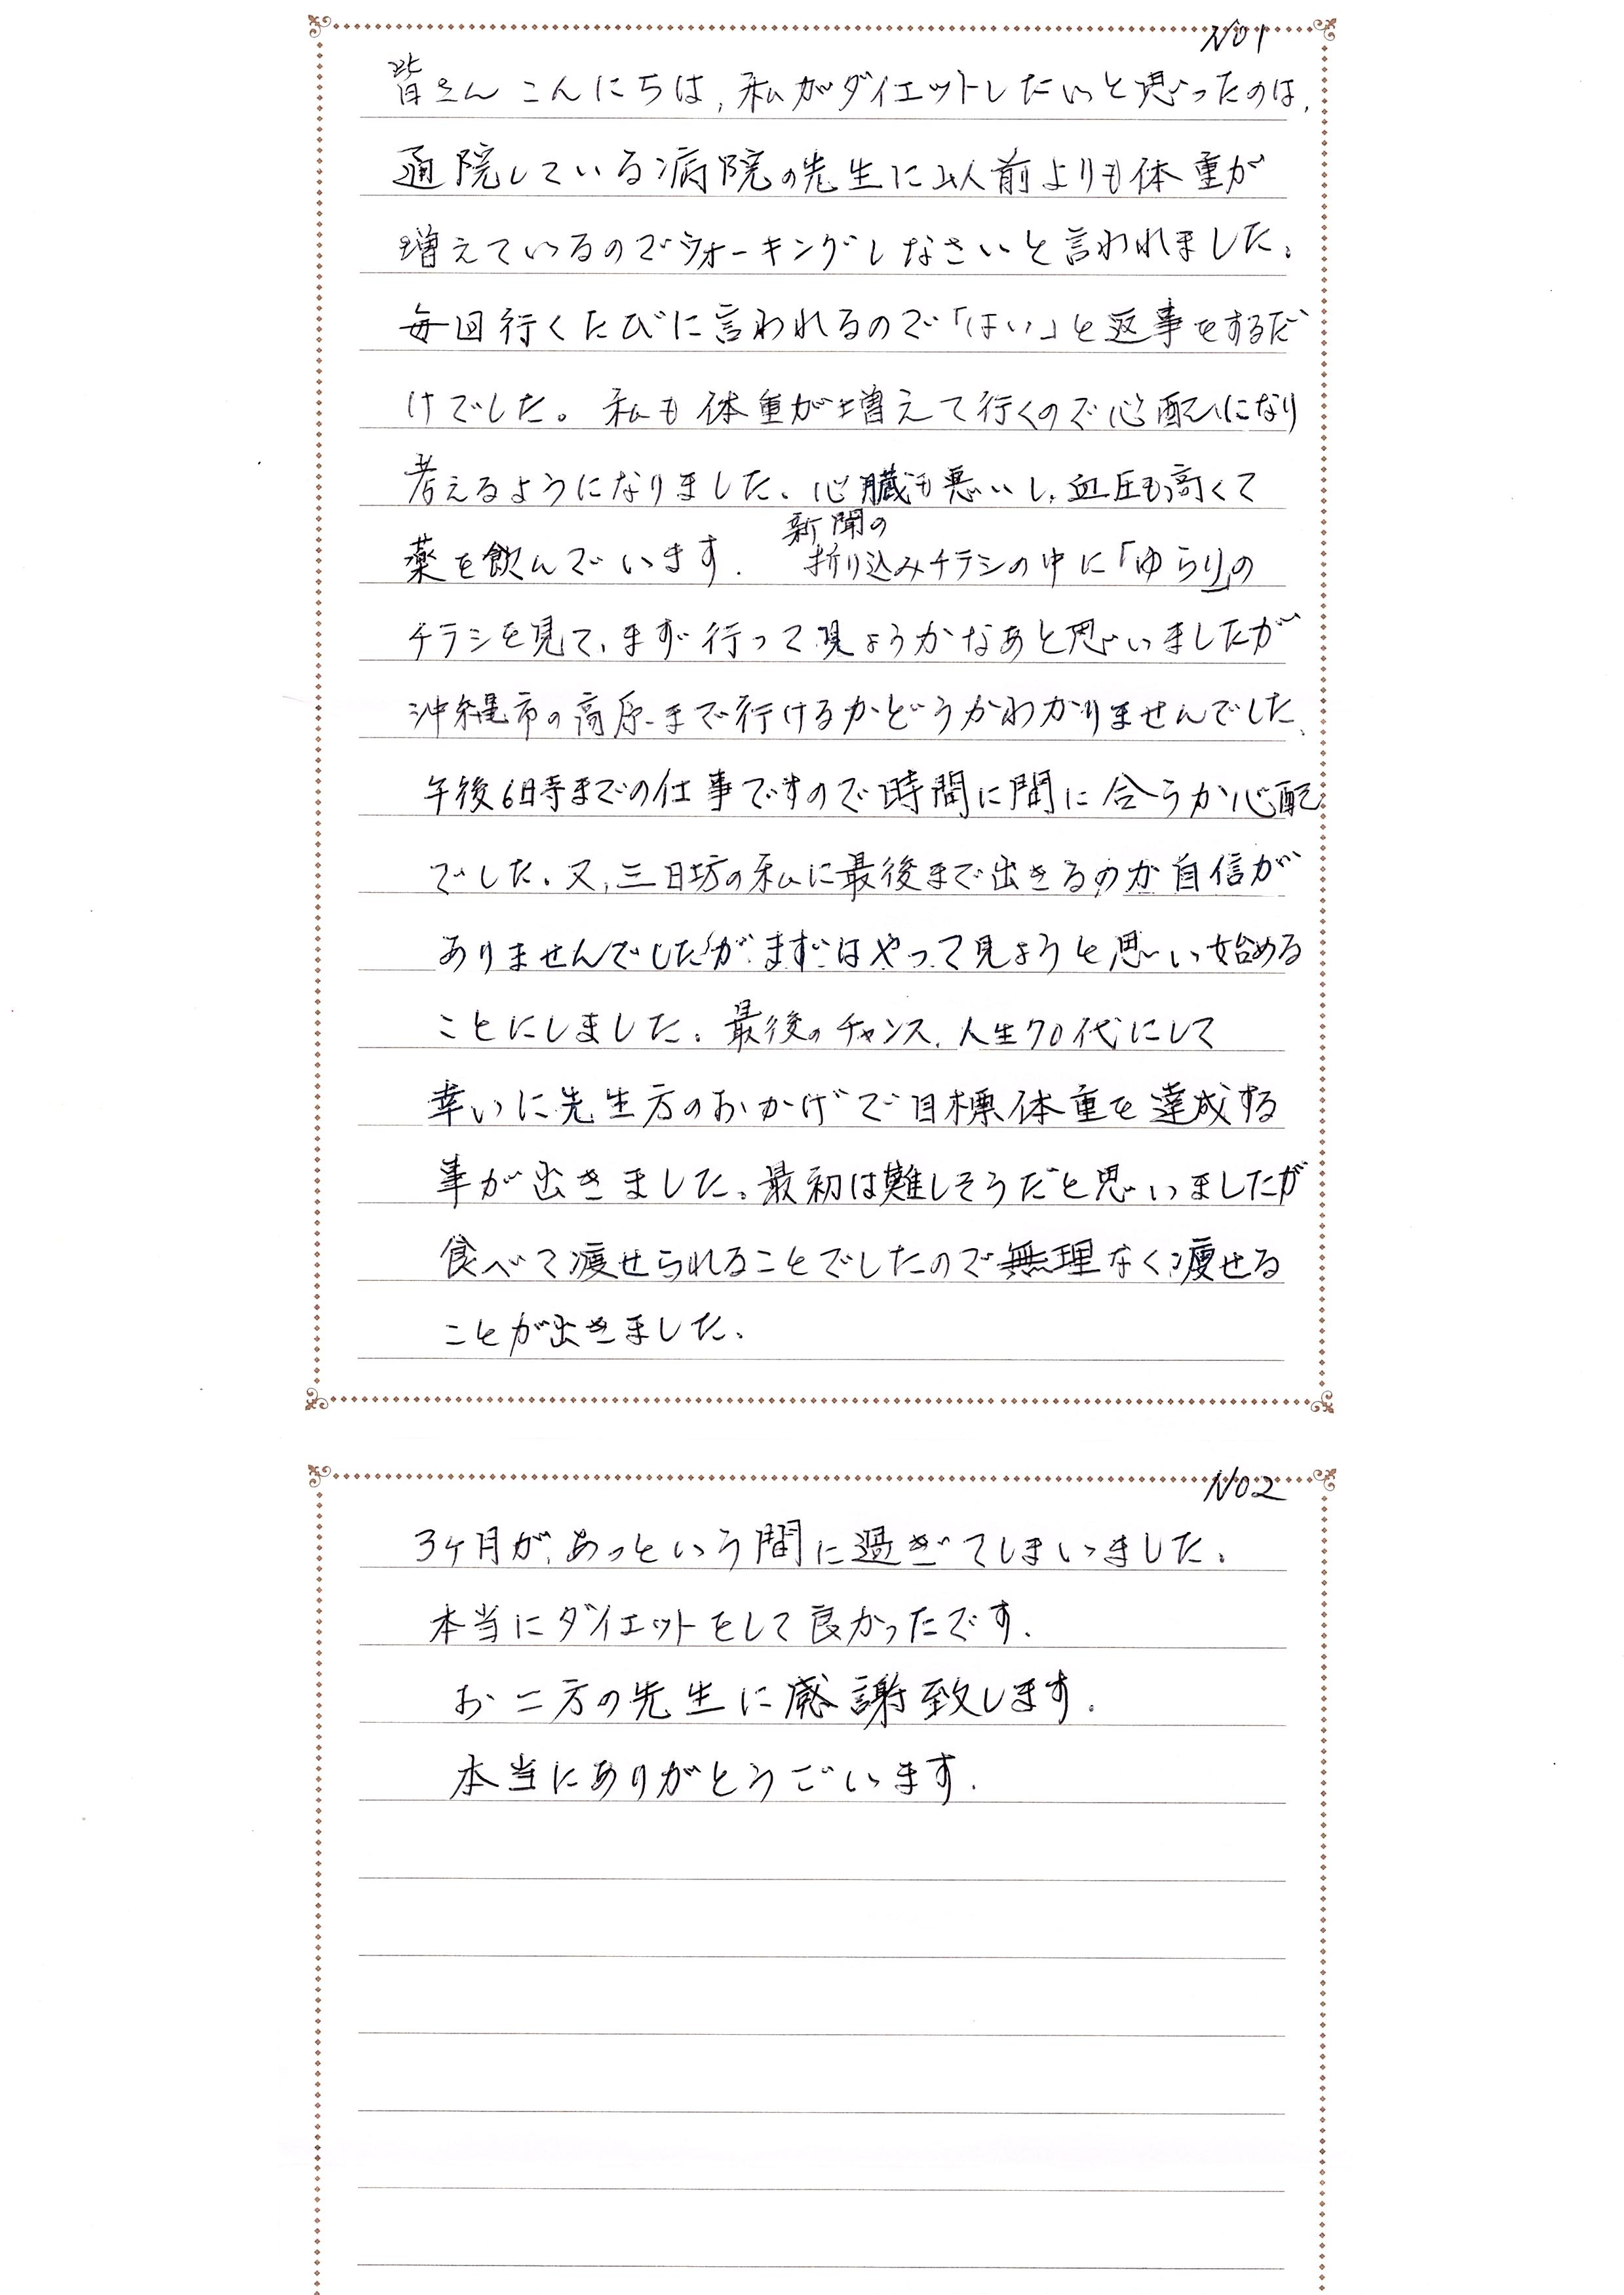 NO1
皆さん こんにちは、私がダイエットしたいと思ったのは、
通院している病院の先生に以前よりも体重が
増えているのでウォーキングしなさいと言われました。
毎回行くたびに言われるので「はい」と返事をするだ
けでした。私も体重が増えて行くので心配になり
考えるようになりました。心臓も悪いし、血圧も高くて
新聞の
薬を飲んでいます. 折り込みチラシの中に「ゆらり」の
チラシを見て、まず行って見ようかなあと思いましたが
沖縄市の高原まで行けるかどうかわかりませんでした、
午後6時までの仕事ですので時間に間に合うか心配
でした。又、三日坊の私に最後まで出きるのか自信が
ありませんでしたが、まずはやって見ようと思い始める
ことにしました。最後のチャンス、人生70代にして
幸いに先生方のおかげで目標体重を達成する
事が出きました。最初は難しそうだと思いましたが
食べて痩せられることでしたので無理なく痩せる
ことが出きました。
NO2
3ヶ月が、あっという間に過ぎてしまいました。
本当にダイエットをして良かったです.
お二方の先生に感謝致します.
本当にありがとうごいます.